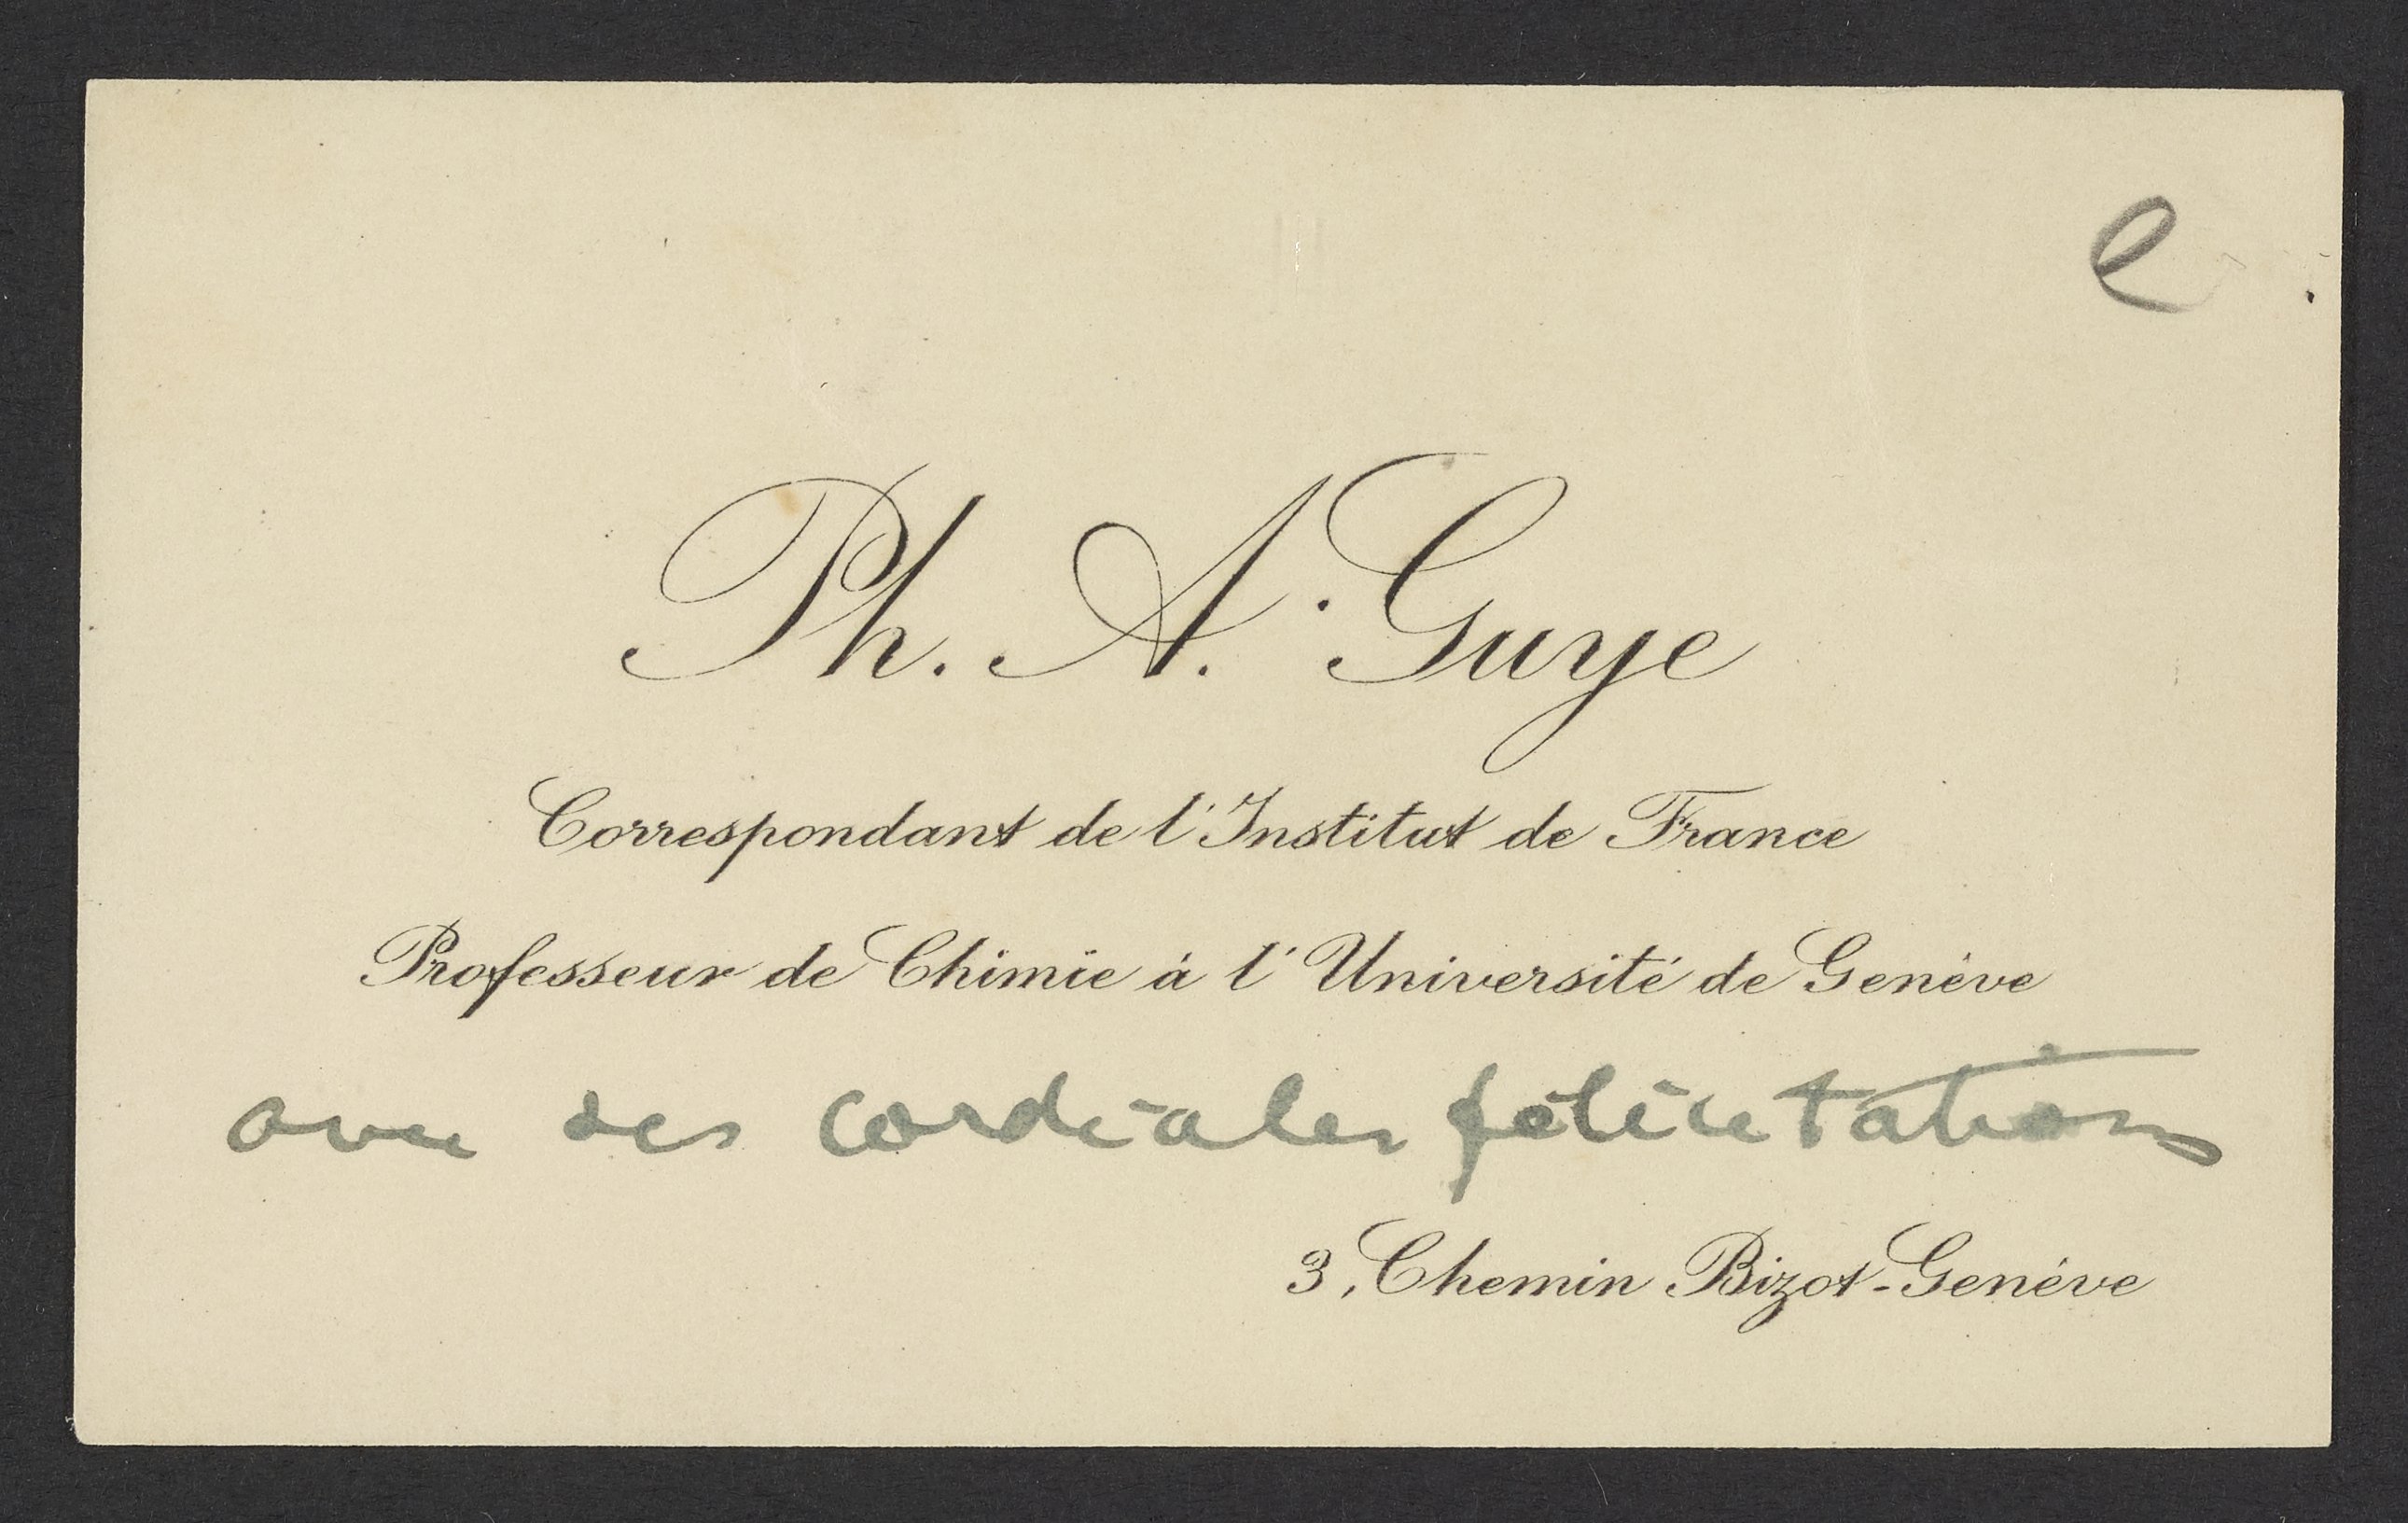 e
Ph. A. Guye
Correspondant de l'Institut de France
Professeur de Chimie à l'Université de Genève
avec ses cordiales félicitations
3, Chemin Bizot - Genève